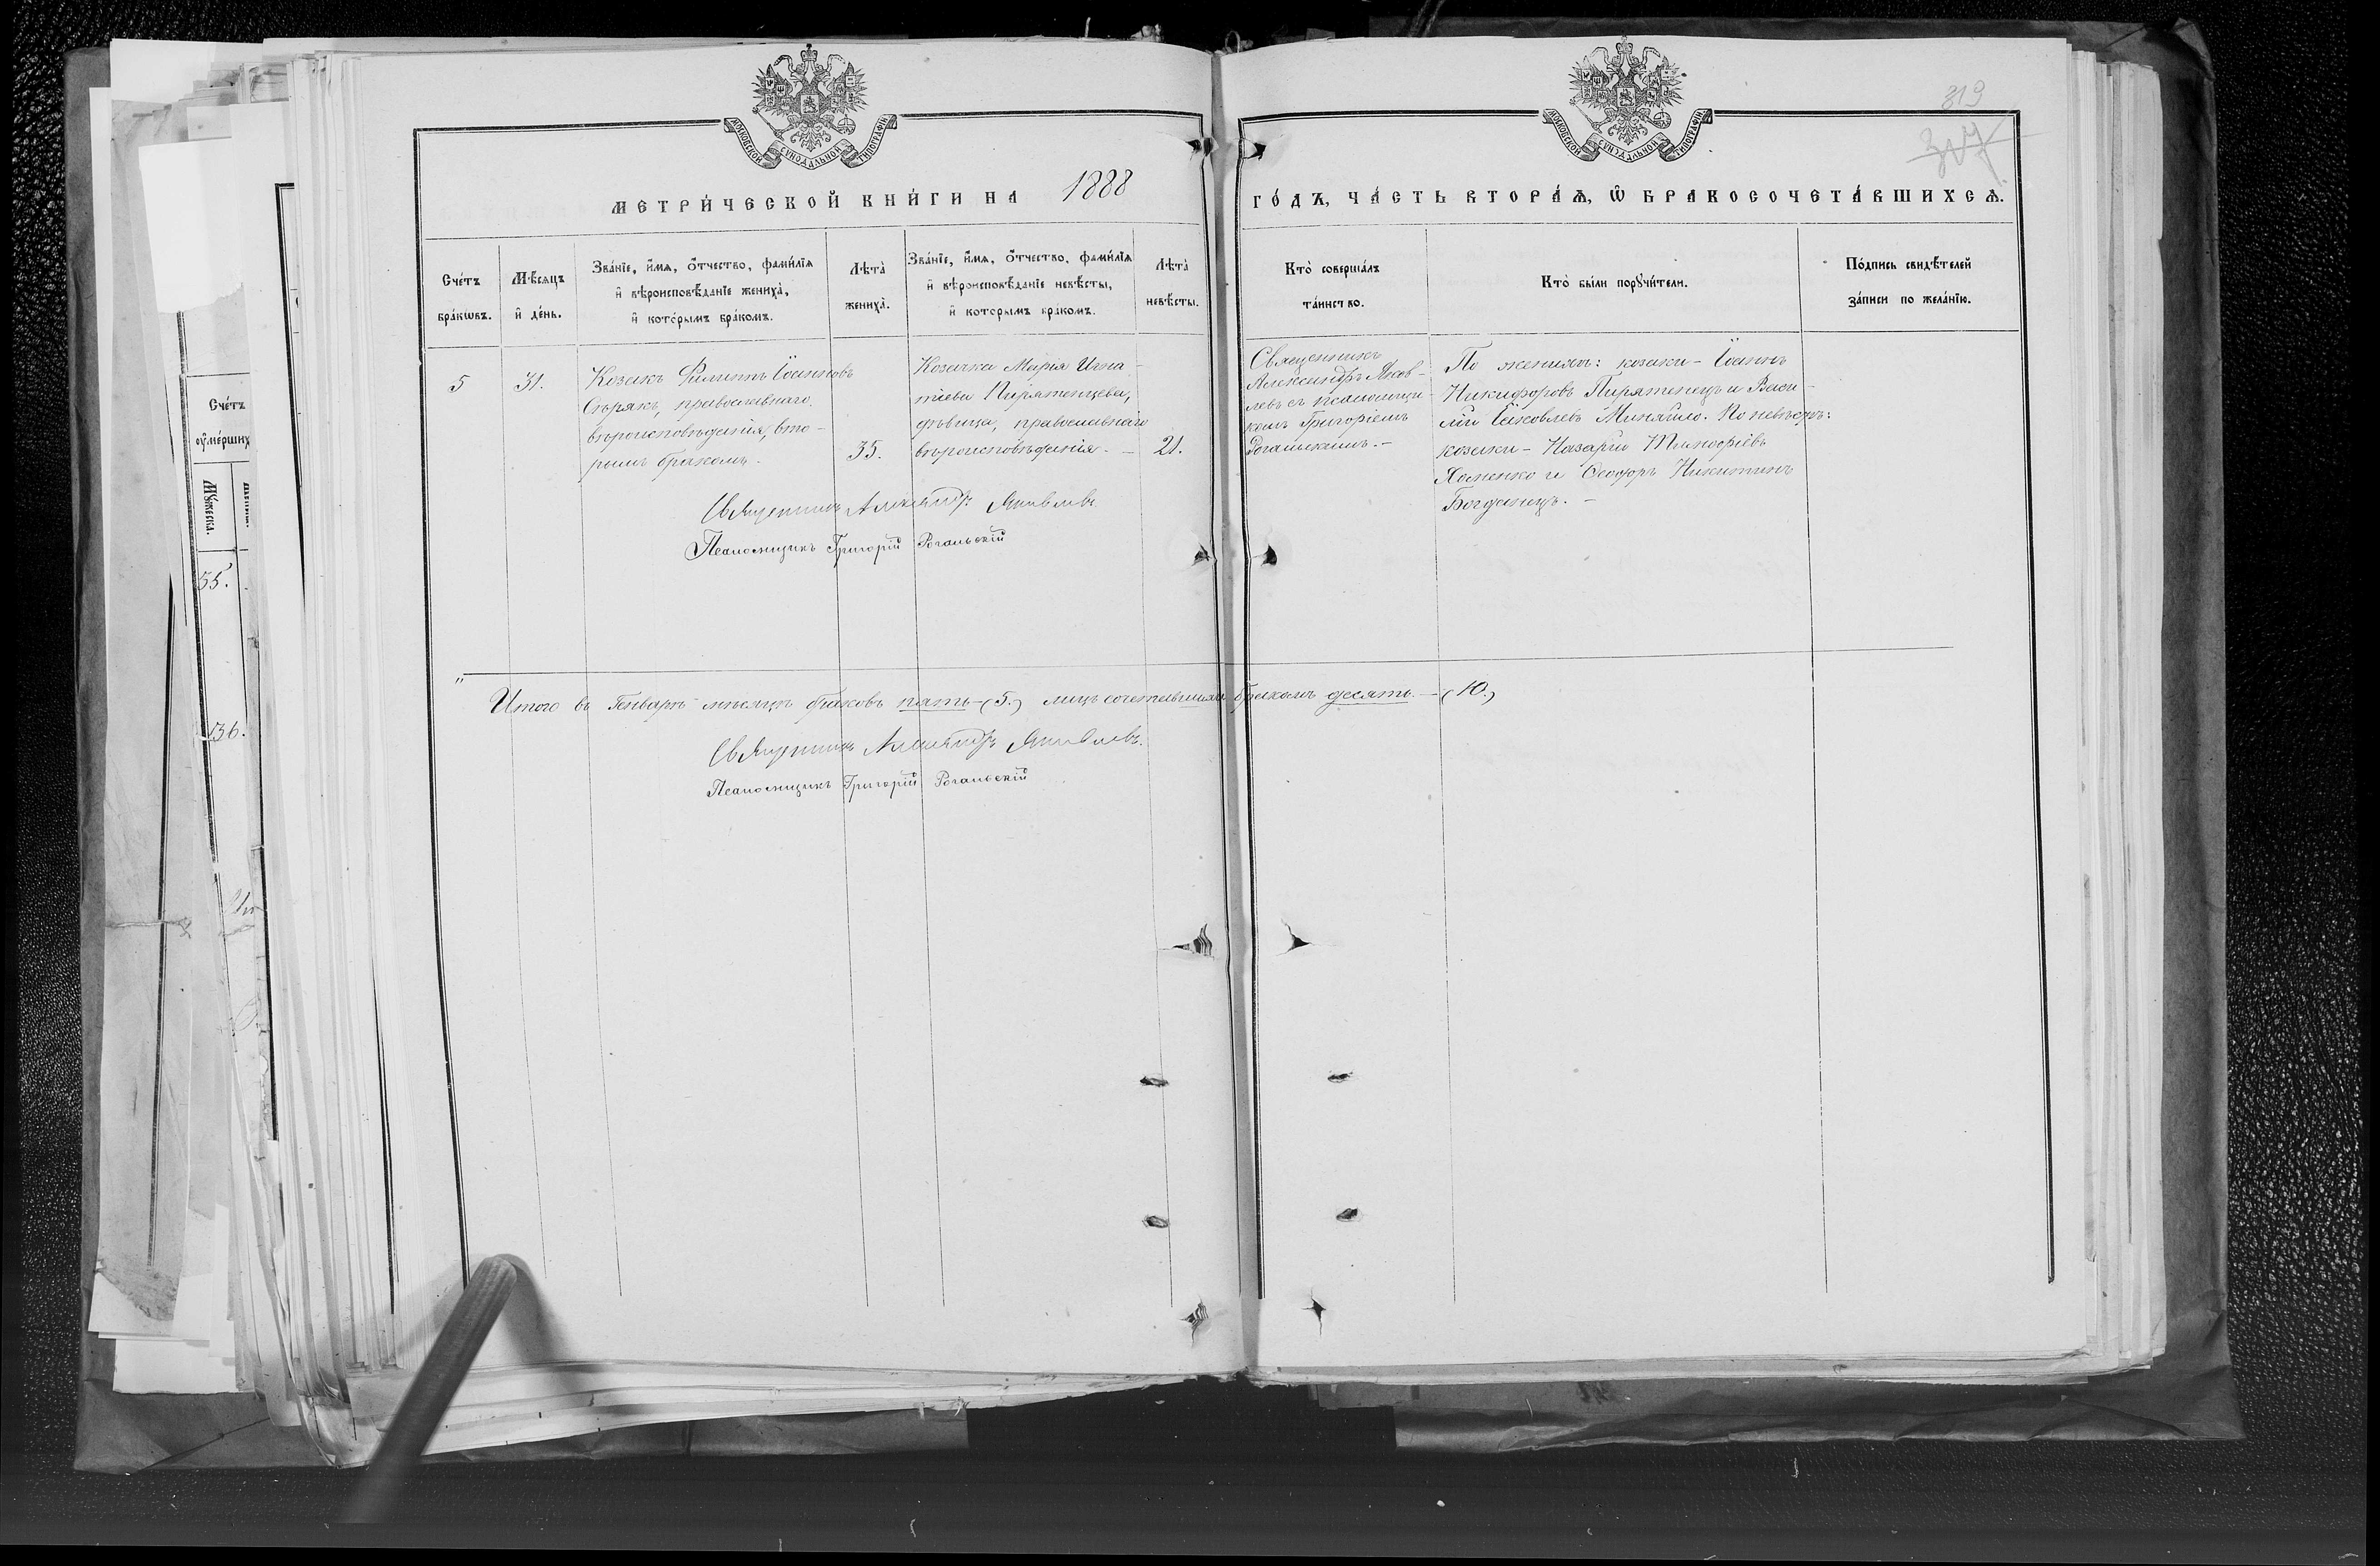 МОСКОВСКОЙ СѴНОДАЛЬНОЙ ТИПОГРАФІИ
МОСКОВСКОЙ СѴНОДАЛЬНОЙ ТИПОГРАФІИ
319
317
МЕТРИ́ЧЕСКОЙ КНИ́ГИ НА 1888
ГО́ДЪ, ЧА́СТЬ ВТОРА́Ѧ, Ѡ҆ БРАКОСОЧЕТА́ВШИХСѦ.
Сче́тъ
бра́кѡвъ.
Мѣ́сяцъ
и҆ де́нь.
Зва́нїе, и҆́мѧ, ѻ҆́тчество, фами́лїѧ
и҆ вѣроисповѣ́данїе жениха̀,
и҆ кото́рымъ бра́комъ.
Лѣта̀
жениха̀.
Зва́нїе, и҆́мѧ, ѻ҆́тчество, фами́лїѧ
и҆ вѣроисповѣ́данїе невѣ́сты,
и҆ которымъ бра́комъ.
Лѣта̀
невѣ́сты.
Кто̀ соверша́лъ
та́инство.
Кто̀ бы́ли порꙋчи́тели.
По́дпись свидѣ́телей
за́писи по жела́нїю.
5
31.
Козакъ Филиппъ Іоанновъ
Сѣрякъ, православнаго
вѣроисповѣданія, вто-
рымъ бракомъ.
35.
Козачка Марія Игна-
тіева Пирятенцева,
дѣвица, православнаго
вѣроисповѣданія. —
21.
Священникъ
Александръ Яков-
левъ съ псаломщи-
комъ Григоріемъ
Рогальскимъ. —
По женихѣ: козаки - Іоаннъ
Никифоровъ Пирятенецъ и Васи-
лій Іаковлевъ Миняйло. По невѣстѣ:
козаки - Назарій Тимофѣевъ
Хоменко и Ѳеодоръ Никитинъ
Богданецъ. —
Священникъ Александръ Яковлевъ
Псаломщикъ Григорій Рогальскій
Итого въ Генварѣ мѣсяцѣ браковъ пять - (5.) лицъ сочетавшихся бракомъ десять. — (10.)
Священникъ Александръ Яковлевъ.
Псаломщикъ Григорій Рогальскій
Сче́тъ
ᲂу҆ме́рших
Мꙋ́жеска.
55.
136.